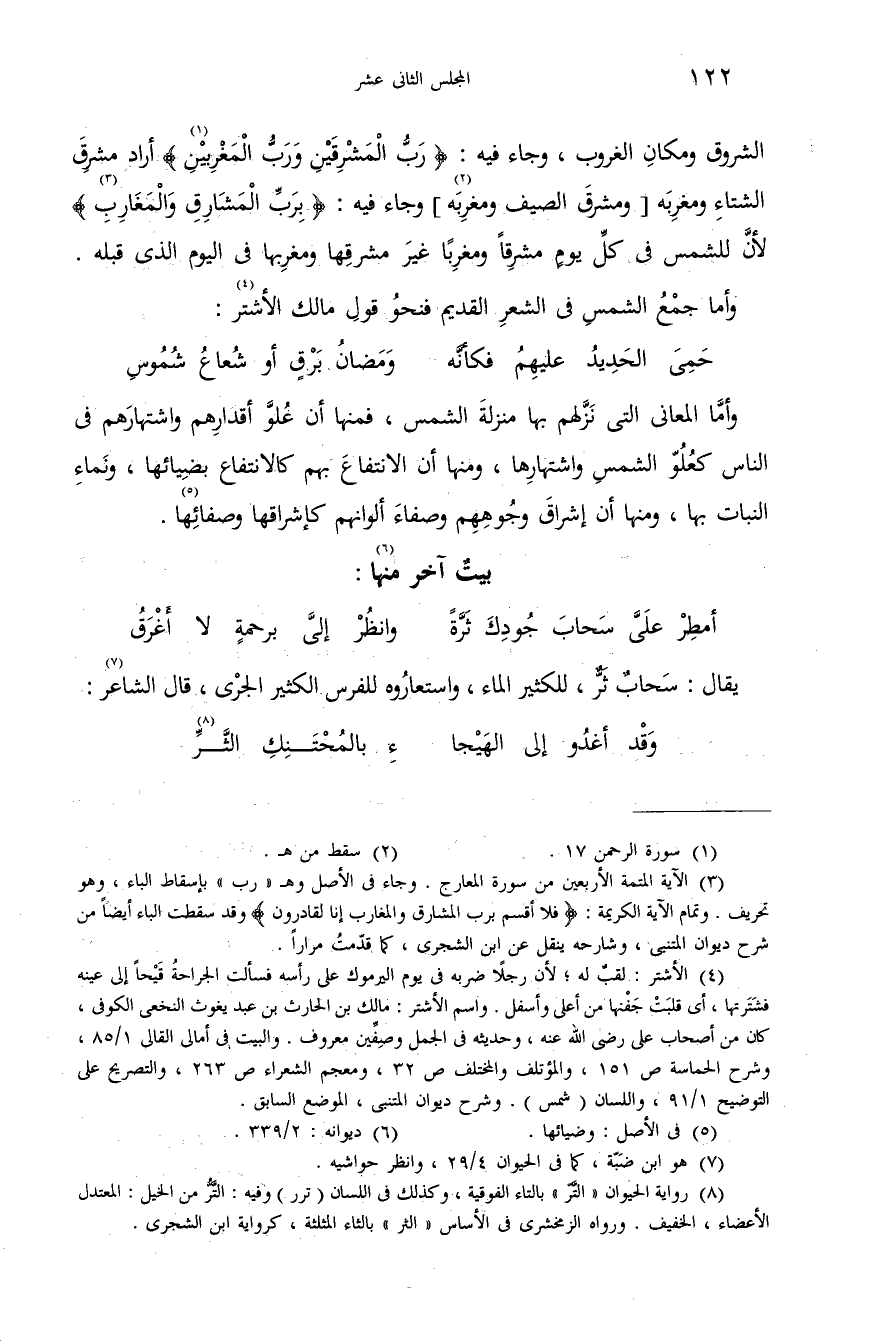 ١٢٢ المجلس الثانى عشر
الشروق ومكانِ الغروب ، وجاء فيه : ﴿ رَبُّ الْمَشْرِقَيْنِ وَرَبُّ الْمَغْرِبَيْنِ ﴾(١) أراد مشرِقَ
الشتاءِ ومغرِبَه [ ومشرقَ الصيف ومغربَه ](٢) وجاء فيه : ﴿ بِرَبِّ الْمَشَارِقِ وَالْمَغَارِبِ ﴾(٣)
لأنَّ للشمس فى كلِّ يومٍ مشرِقاً ومغربًا غيرَ مشرقِها ومغرِبها فى اليوم الذى قبله .
وأما جمْعُ الشمسِ فى الشعرِ القديم فنحوُ قولِ مالك الأشتر(٤) :
حَمِىَ الحَدِيدُ عليهِمُ فكأنَّه وَمَضانُ بَرْقٍ أو شُعاعُ شُمُوسِ
وأمَّا المعانى التى نَزَّلهم بها منزلةَ الشمس ، فمنها أن عُلوَّ أقدارِهم واشتهارَهم فى
الناس كعُلُوّ الشمسِ واشتهارِها ، ومنها أن الانتفاعَ بهم كالانتفاع بضِيائها ، ونَماءِ
النبات بها ، ومنها أن إشراقَ وجُوهِهِم وصفاءَ ألوانهم كإشراقها وصفائِها(٥) .
بيتٌ آخر منها(٦) :
أمطِرْ علَىَّ سَحابَ جُودِكَ ثَرَّةً وانظُرْ إلىَّ برحمةٍ لا أَغْرَقُ
يقال : سَحابٌ ثَرٌّ ، للكثير الماء ، واستعارُوه للفرس الكثير الجرْى ، قال الشاعر(٧) :
وَقْد أغدُو إلى الهَيْجا ءِ بالمُحْتَنِكِ الثَّرِّ(٨)
(١) سورة الرحمن ١٧ . (٢) سقط من هـ .
(٣) الآية المتمة الأربعين من سورة المعارج . وجاء فى الأصل وهـ « رب » بإسقاط الباء ، وهو
تحريف . وتمام الآية الكريمة : ﴿ فلا أقسم برب المشارق والمغارب إنا لقادرون ﴾ وقد سقطت الباء أيضاً من
شرح ديوان المتنبى ، وشارحه ينقل عن ابن الشجرى ، كما قدّمتُ مراراً .
(٤) الأشتر : لقبٌ له ؛ لأن رجلًا ضربه فى يوم اليرموك على رأسه فسألت الجراحةُ قَيْحاً إلى عينه
فشَتَرتها ، أى قلبَتْ جَفْنها من أعلى وأسفل . واسم الأشتر : مالك بن الحارث بن عبد يغوث النخعى الكوفى ،
كان من أصحاب على رضى الله عنه ، وحديثه فى الجمل وصِفِّين معروف . والبيت فى أمالى القالى ٨٥/١ ،
وشرح الحماسة ص ١٥١ ، والمؤتلف والمختلف ص ٣٢ ، ومعجم الشعراء ص ٢٦٣ ، والتصريح على
التوضيح ٩١/١ ، واللسان ( شمس ) . وشرح ديوان المتنبى ، الموضع السابق .
(٥) فى الأصل : وضيائها . (٦) ديوانه : ٣٣٩/٢ .
(٧) هو ابن ضبّة ، كما فى الحيوان ٢٩/٤ ، وانظر حواشيه .
(٨) رواية الحيوان « التّرّ » بالتاء الفوقية ، وكذلك فى اللسان ( ترر ) وفيه : التَّرُّ من الخيل : المعتدل
الأعضاء ، الخفيف . ورواه الزمخشرى فى الأساس « الثر » بالثاء المثلثة ، كرواية ابن الشجرى .